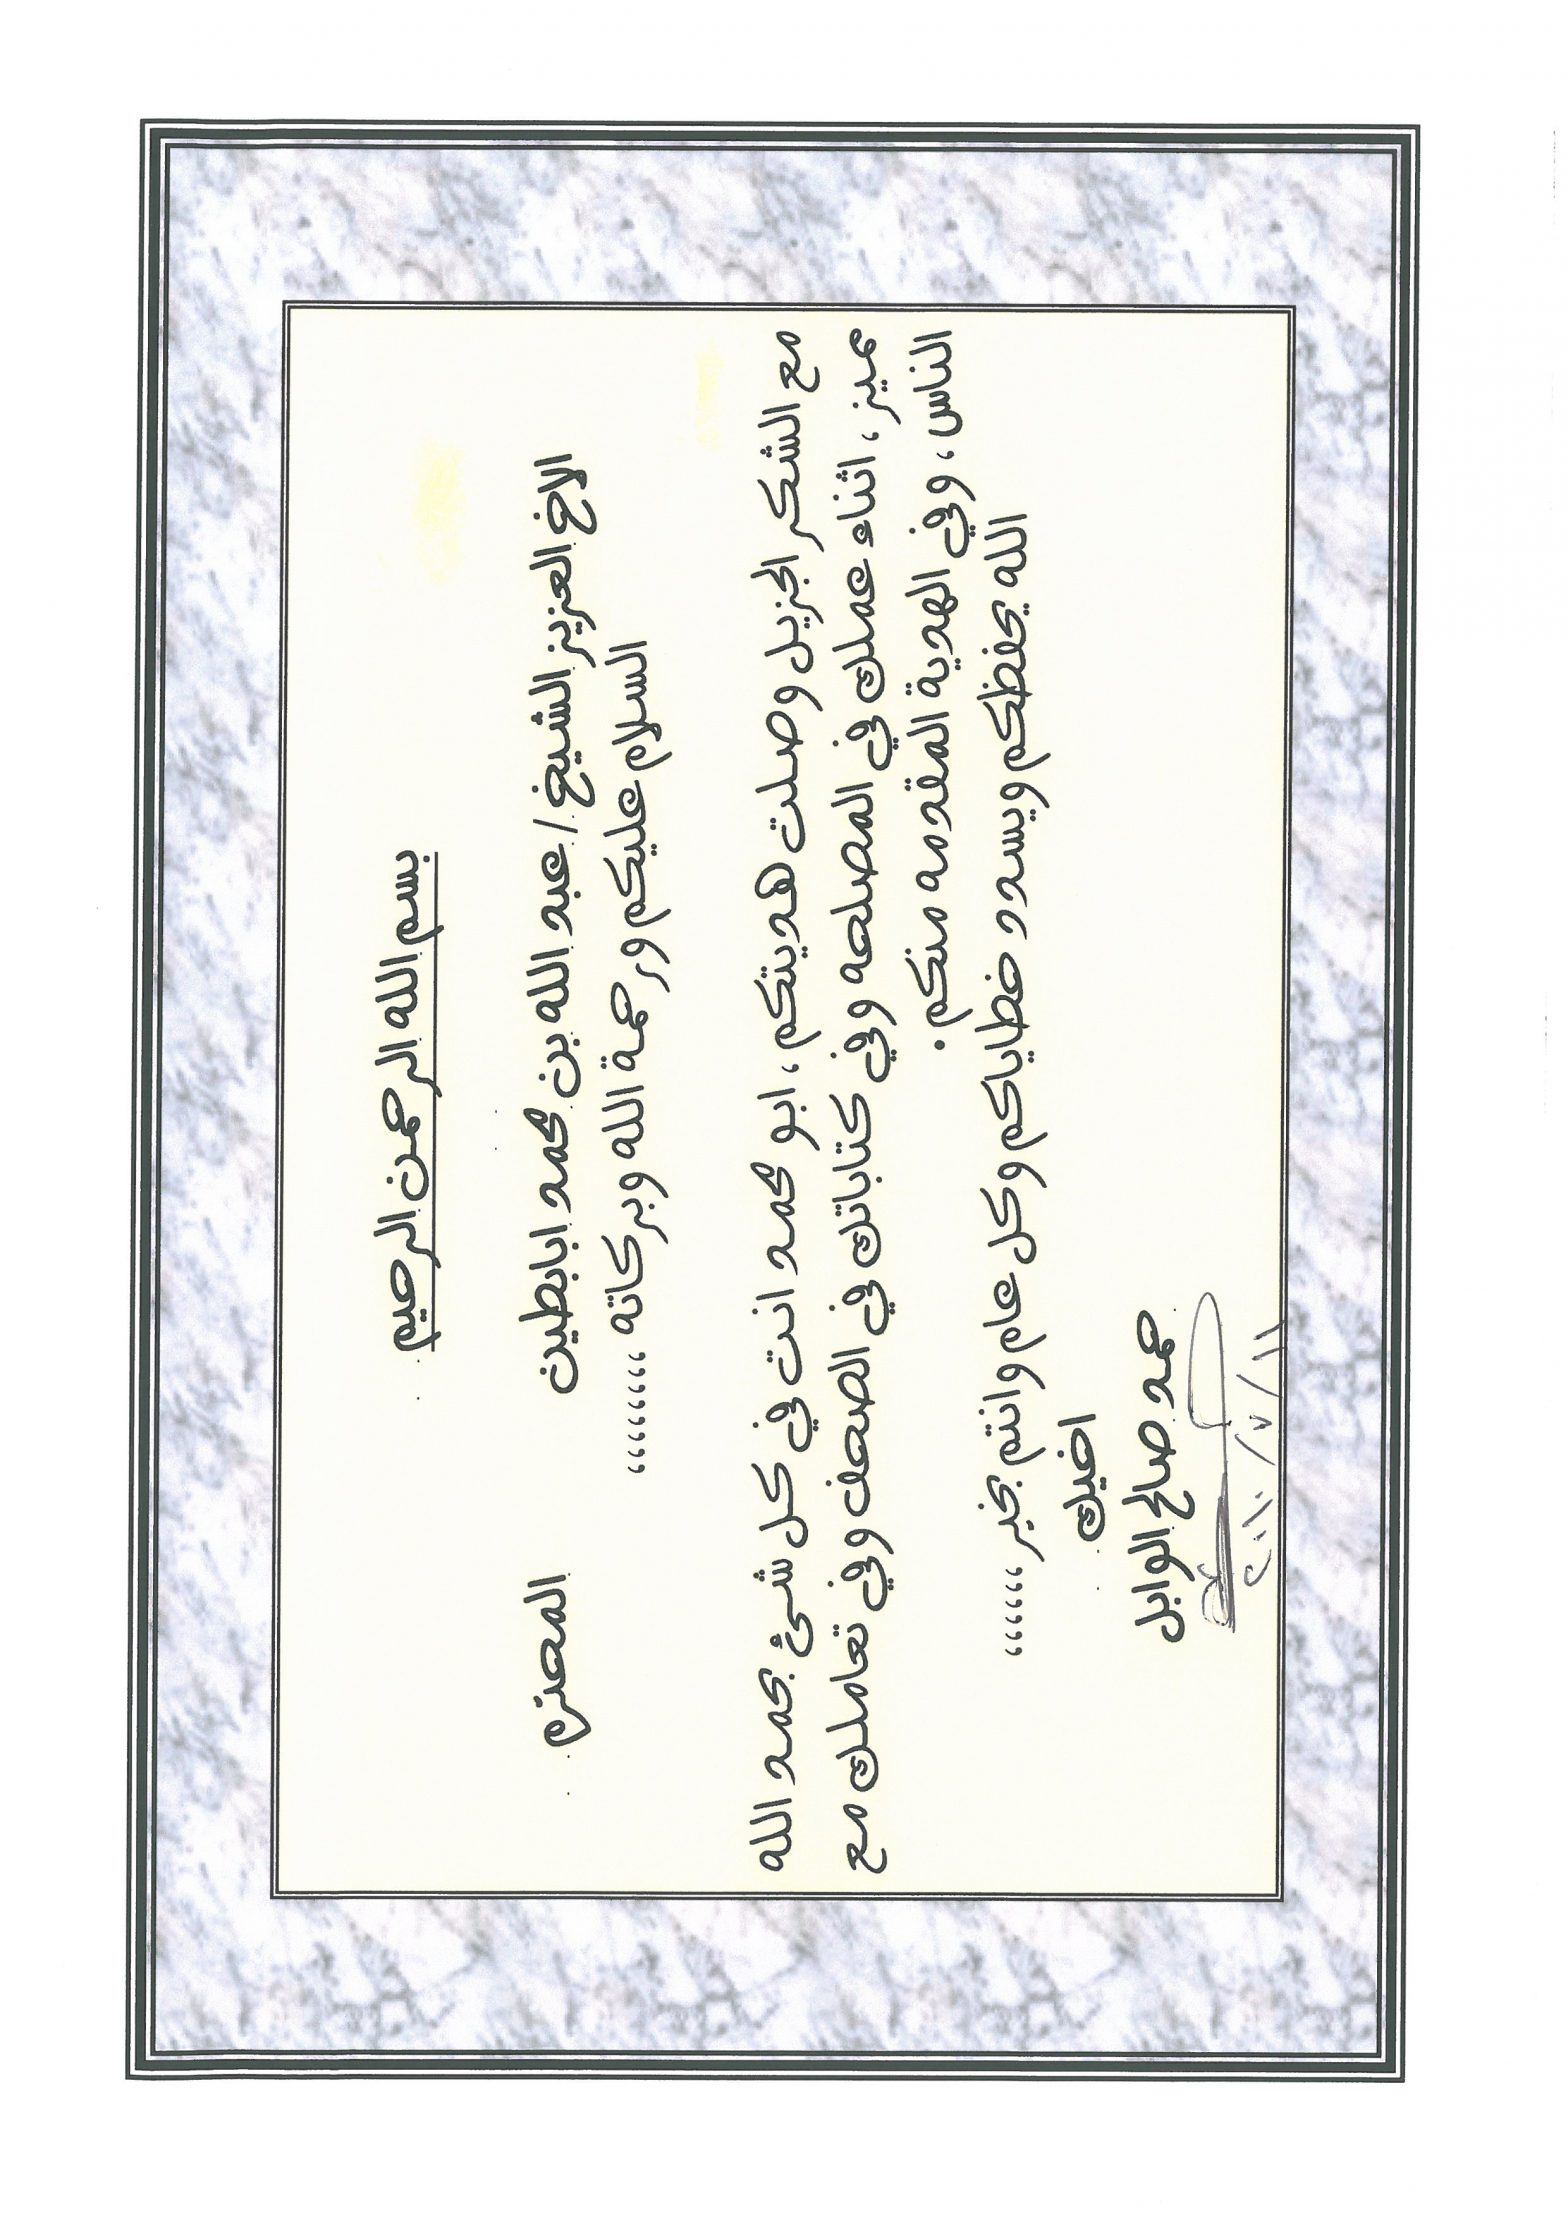 بسم الله الرحمن الرحيم
الاخ العزيز الشيخ / عبد الله بن محمد ابابطين المحترم
السلام عليكم ورحمة الله وبركاته ،،،،،،،،
مع الشكر الجزيل وصلت هديتكم ، ابو محمد انت في كل شئ بحمد الله
مميز ، اثناء عملك في المصلحه وفي كتاباتك في الصحف وفي تعاملك مع
الناس ، وفي الهدية المقدمه منكم .
الله يحفظكم ويسدد خطاياكم وكل عام وانتم بخير ،،،،،،
اخيك
حمد صالح الوابل
٢٠١٠/٧/١١